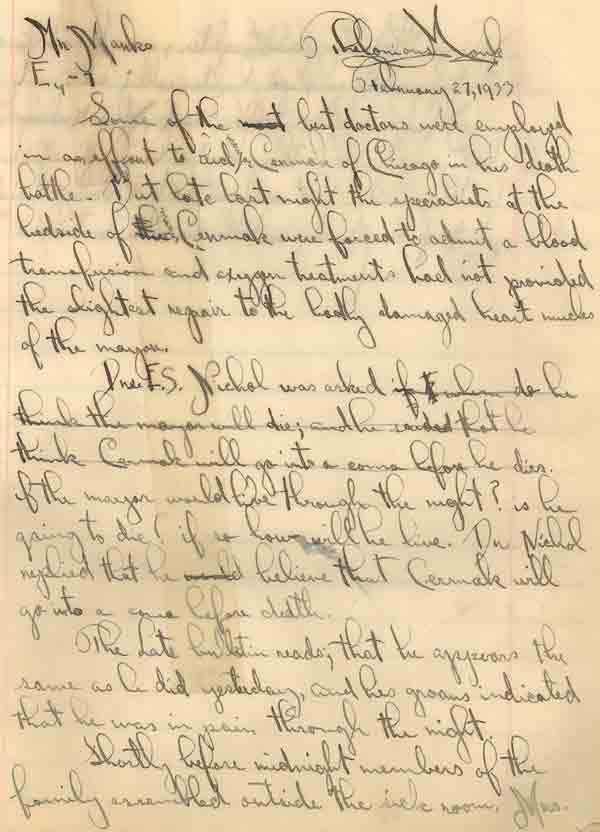 Mr. Manko Thelonious Monk
E4-7 February 27, 1933
Some of the most best doctors were employed
in an effort to aid Mr. Cermak of Chicago in his death
battle. But late last night the specialists at the
bedside of Cermak were forced to admit a blood
transfusion and oxygen treatments had not provided
the slightest repair to the badly damaged heart mucles
of the mayor.
E.S. Nichol was asked if when do he
think the mayor will die; and he saided that he
think Cermak will go into a coma before he dies.
if the mayor would live through the night? is he
going to die? if so how will he live. Dr. Nichol
replied that he would believe that Cermak will
go into a coma before death.
The Late bulletin reads; that he appears the
same as he did yesterday, and his groans indicated
that he was in pain through the night.
Shortly before midnight members of the
family assembled outside the sick room. Mrs.